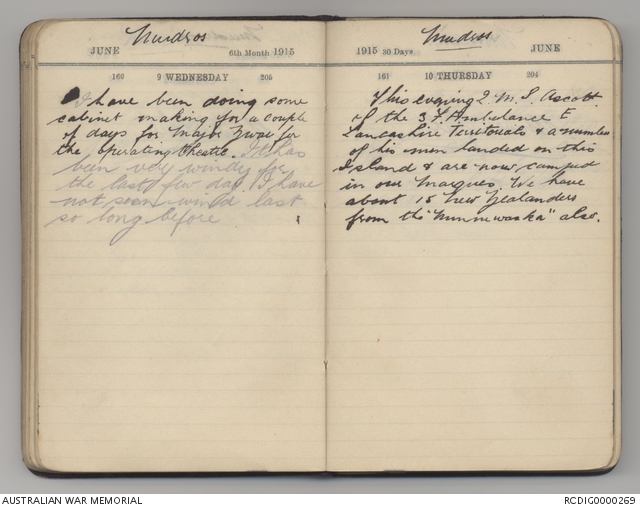 Mudros
JUNE 6th Month 1915
160 9 WEDNESDAY 205
I have been doing some
cabinet making for a couple
of days for Major for
the operating theatre. It has
been very windy for
the last few day I have
not seen wind last
so long before
Mudros
1915 30 Days JUNE
161 10 THURSDAY 204
This evening Q.M.S. Ascott
of the 3 F. Ambulance E
Lancashire Territorials & a number
of his men landed on this
Island & are now camped
in our Marques. We have
about 15 New Zealanders
from the also.
AUSTRALIAN WAR MEMORIAL
RCDIG0000269